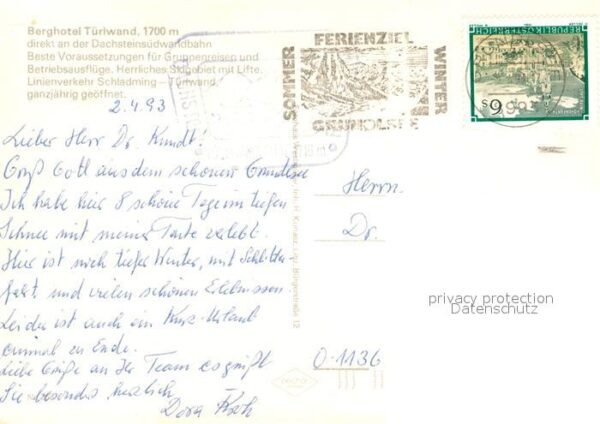 Berghotel Türlwand, 1700 m
direkt an der Dachsteinsüdwandbahn
Beste Voraussetzungen für Gruppenreisen und
Betriebsausflüge. Herrliches Skigebiet mit Lifte.
Linienverkehr Schladming — Türlwand,
ganzjährig geöffnet.
2.4.93
SOMMER
FERIENZIEL
WINTER
REPUBLIK ÖSTERREICH
S 6
Lieber Herr Dr. Kundt!
Grüß Gott aus dem schönen
Ich habe hier 8 schöne Tage im tiefen
Schnee mit meiner Tante verlebt.
Hier ist noch tiefer Winter, mit Schlitten-
fahrt und vielen schönen Erlebnissen.
Leider ist auch ein Kurz-Urlaub
einmal zu Ende.
Liebe Grüße an Ihr Team es grüßt
Sie besonders herzlich
Dora
Herrn
Dr.
O-1136
privacy protection
Datenschutz